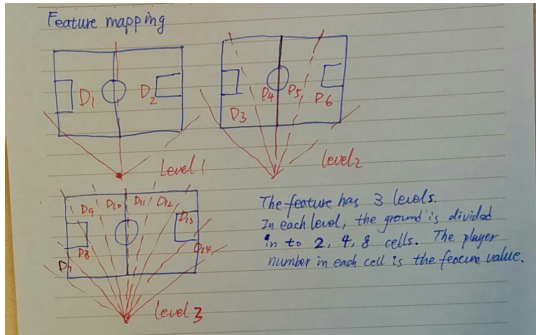 Feature mapping
D1
D2
Level 1
D3
D4
D5
D6
Level 2
D7
D8
D9
D10
D11
D12
D13
D14
Level 3
The feature has 3 levels.
In each level, the ground is divided
in to 2, 4, 8 cells. The player
number in each cell is the feature value.